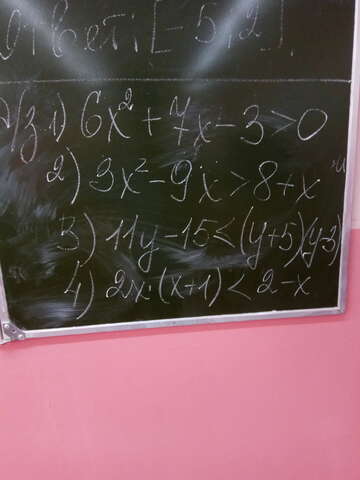 Ответ: [-5; 2].
Д/з. 1) 6x² + 7x - 3 > 0
2) 3x² - 9x > 8 + x
3) 11y - 15 ≤ (y+5)(y-3)
4) 2x·(x+1) < 2 - x